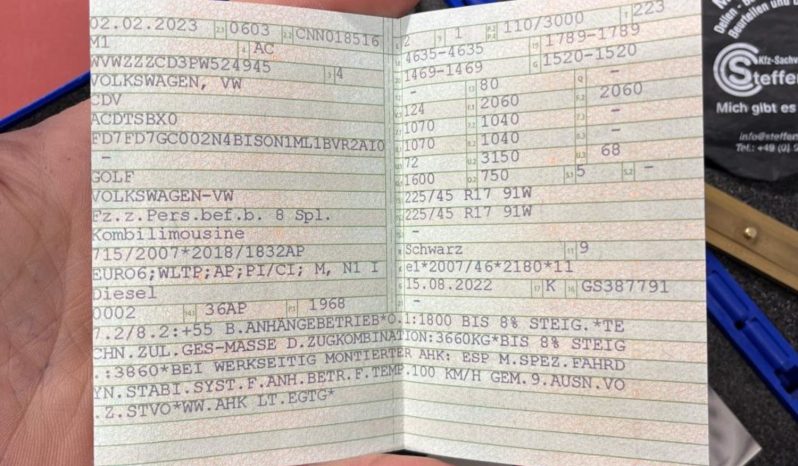 02.02.2023 2.1 0603 2.2 CNN018516
M1 4 AC
WVWZZZCD3PW524945 3 4
VOLKSWAGEN, VW
CDV
ACDTSBX0
FD7FD7GC002N4BISON1ML1BVR2AI0
-
GOLF
VOLKSWAGEN-VW
Fz.z.Pers.bef.b. 8 Spl.
Kombilimousine
715/2007*2018/1832AP
EURO6;WLTP;AP;PI/CI; M, N1 I
Diesel
0002 14.1 36AP P.1 1968
L 2 9 1 110/3000 T 223
4635-4635 19 1789-1789
1469-1469 G 1520-1520
- 13 80 Q -
124 2060 2060
1070 1040 -
1070 1040 -
72 3150 68
1600 750 S.1 5 S.2 -
225/45 R17 91W
225/45 R17 91W
-
Schwarz 11 9
e1*2007/46*2180*11
15.08.2022 17 K 16 GS387791
-
7.2/8.2:+55 B.ANHÄNGEBETRIEB*O.1:1800 BIS 8% STEIG.*TE
CHN.ZUL.GES-MASSE D.ZUGKOMBINATION:3660KG*BIS 8% STEIG
.:3860*BEI WERKSEITIG MONTIERTER AHK: ESP M.SPEZ.FAHRD
YN.STABI.SYST.F.ANH.BETR.F.TEMP.100 KM/H GEM.9.AUSN.VO
.Z.STVO*WW.AHK LT.EGTG*
Dellen -
Beurteilen und
Kfz-Sachv
Steffen
Mich gibt es
info@steffen
Tel.: +49 (0)